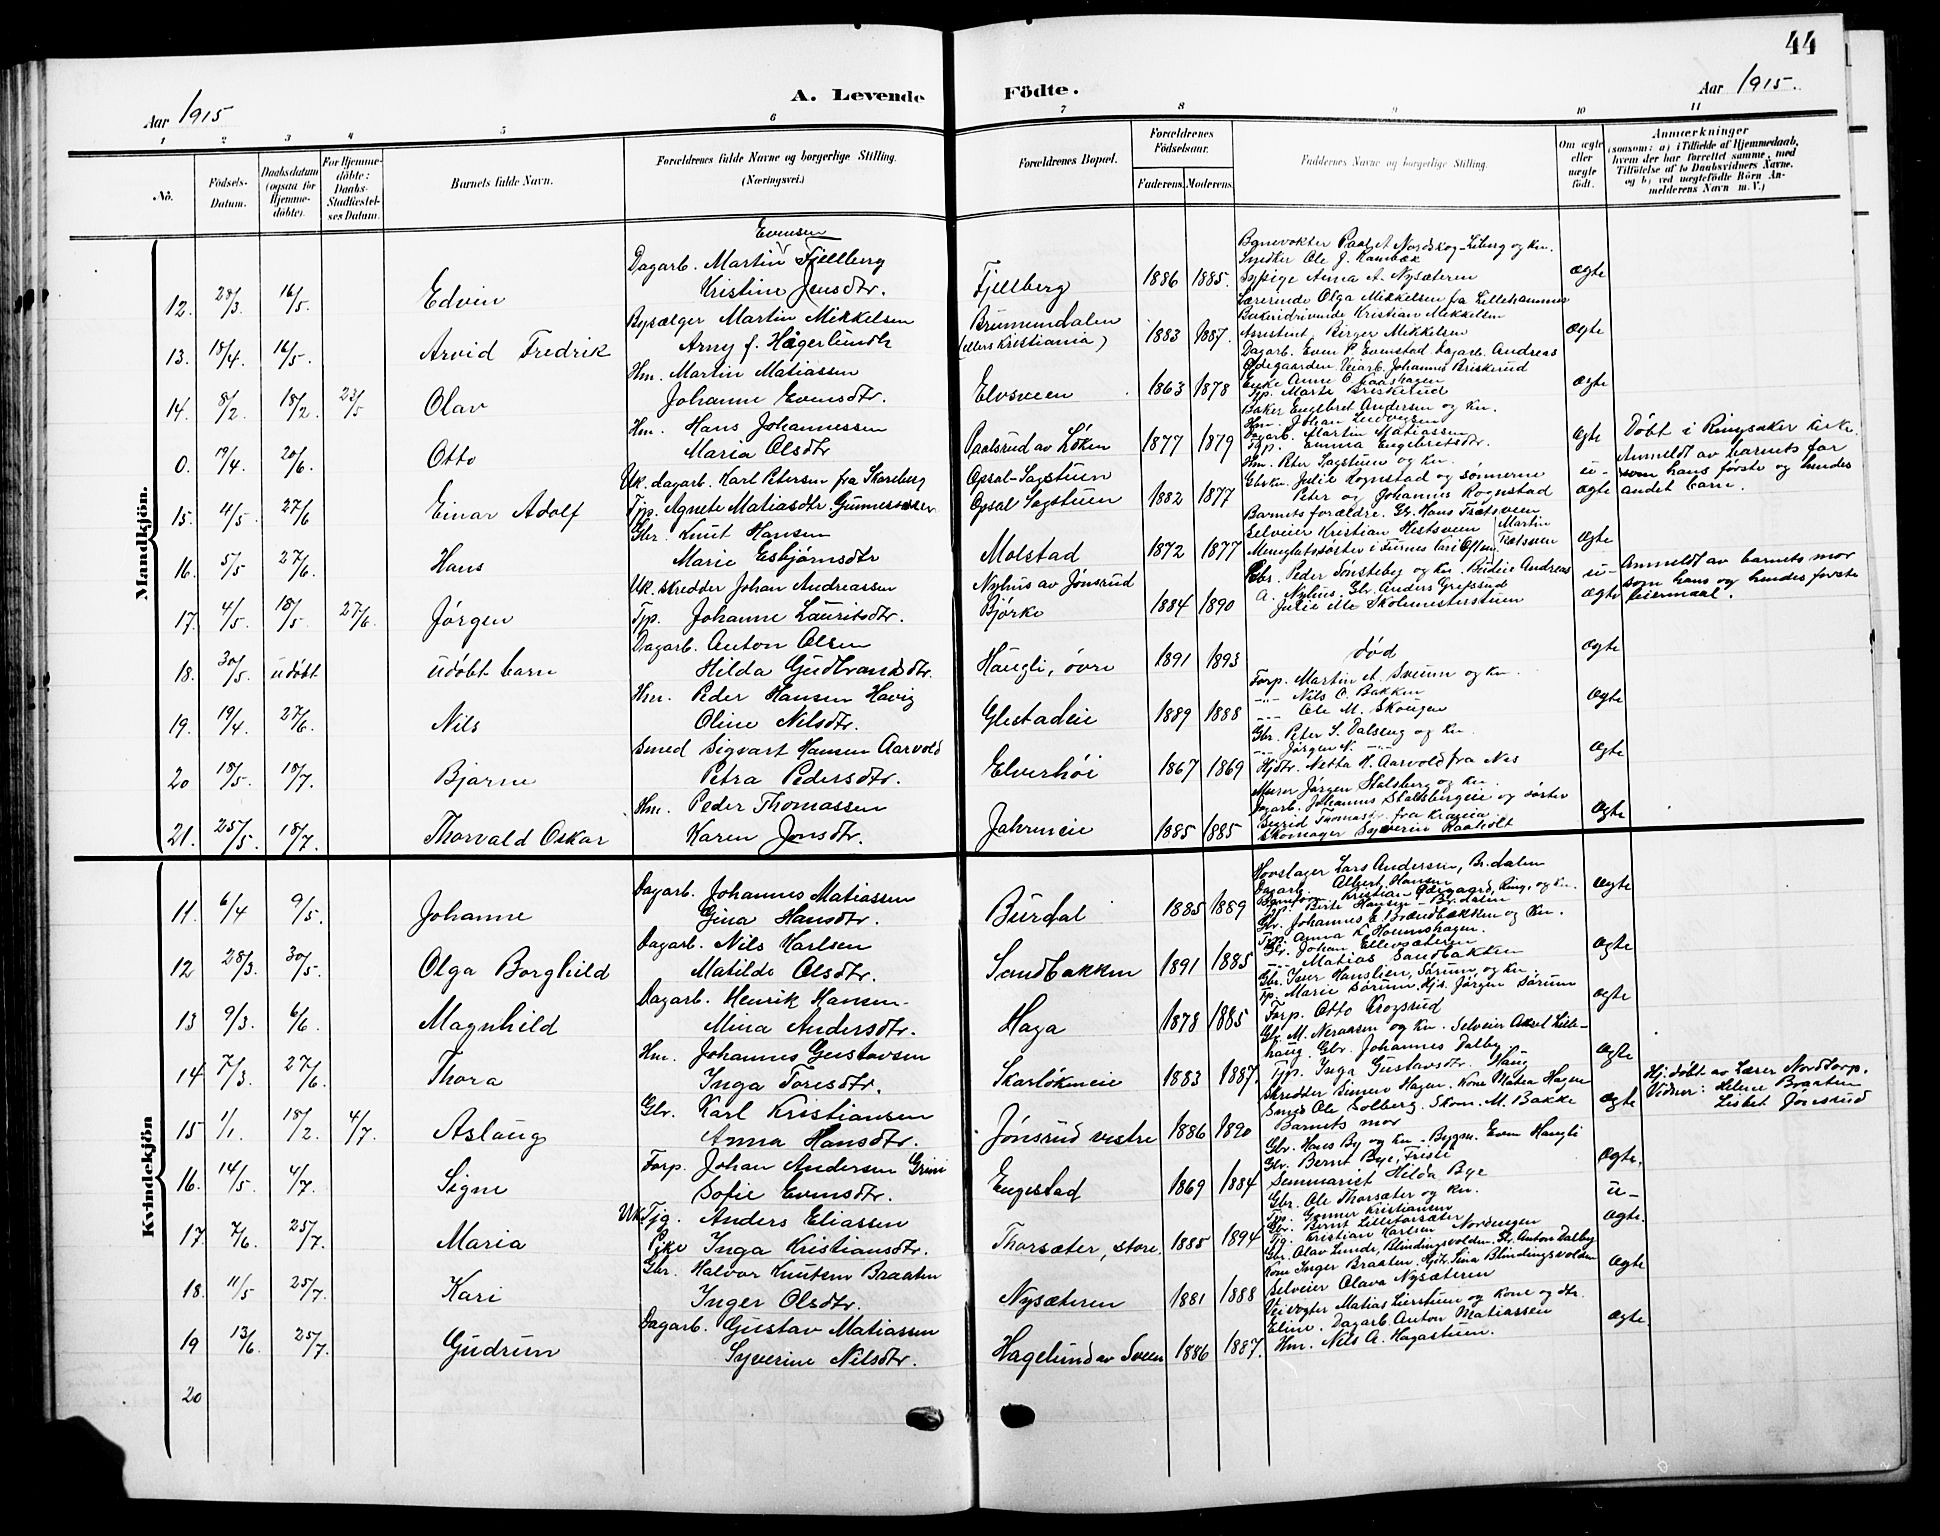 44
Aar 1915
A. Levende Födte.
Aar 1915.
1 2 3 4 5 6 7 8 9 10 11
No.
Födsels-Datum.
Daabsdatum (ogsaa for Hjemmedöbte).
For Hjemmedöbte: Daabs-Stadfæstelses Datum.
Barnets fulde Navn.
Forældrenes fulde Navne og borgerlige Stilling.
(Næringsvei.)
Forældrenes Bopæl.
Forældrenes Födselsaar.
Faderens. Moderens.
Faddernes Navne og borgerlige Stilling.
Om ægte eller uægte födt.
Anmærkninger
(saasom: a) i Tilfælde af Hjemmedaab, hvem der har forrettet samme, med Tilföielse af to Daabsvidners Navne. og b) ved uægtefödte Börn Anmelderens Navn m. V.)
Mandkjön.
Evensen
Dagarb. Martin Fjellberg
Kristine Jensdtr.
12. 28/3 16/5 Edvin Fjellberg 1886 1885. ægte
Bynevokter Paal A Nordskog-Liberg og kn.
Snedker Ole J. Kambæk
Sypige Anna A. Nysæteren
Bysælger Martin Mikkelsen
Arny f. Hagerlundh
13. 18/4 16/5. Arvid Fredrik Brumundalen (ellers Kristiania) 1883 1887. ægte
Lærerinde Olga Mikkelsen fra Lillehammer
Kristian Mikkelsen
Assistent Birger Mikkelsen
Hm. Martin Matiassen
Johanne Evensdtr.
14. 8/2 18/2. 23/5 Olav Elvsveen 1863 1878 ægte
Dagarb. Even P. Evenstad Dagarb. Andreas
Ødegaarden Veiarb. Johannes Briskerud
Enke Anne O. Kaashagen
Tjp. Marte Briskerud
Hm. Hans Johannessen
Maria Olsdtr
0. 19/4. 20/6. Otto Paalsrud av Løken 1877 1879 ægte
Baker Engebret Andersen og kn.
Hm. Johan Ludvigsen
Dagarb. Martin Matiassen
Tjp. Emma Engebretsdtr.
Døbt i Ringsaker kirke.
Uk. dagarb. Karl Petersen fra Skarsberg
Tjp. Agnete Matiasdtr. Gunnessæter
15. 4/5. 27/6 Einar Adolf Opsal-Sagstuen
Opsal Sagstuen 1882 1877 u-ægte
Hm. Peter Sagstuen og kn.
Gbrkn. Julie Rognstad og sønnerne
Peter og Johannes Rognstad
Anmeldt av barnets far
som hans første og hendes
andet barn.
Gbr. Knut Hansen
Marie Esbjørnsdtr
16. 5/5 27/6. Hans Molstad 1872 1877 ægte
Barnets forældre. Gbr. Hans Trætsveen
Selveier Kristian Hestsveen Martin Trætsveen
Uk. skredder Johan Andreassen
Tjp. Johanne Lauritsdtr.
17. 4/5. 18/5 27/6. Jørgen Nyhus av Jønsrud
Bjørke 1884 1890 u-ægte
Gbr. Peder Sønsteby og kn. Budeie Andreas
A. Nyhus. Gbr. Anders Grefsrud
Julie Skolmesterstuen
Anmeldt av barnets mor
som hans og hendes første
leiermaal.
Dagarb. Anton Olsen
Hilda Gudbrandsdtr.
18. 30/5. udøbt udøbt barn Haugli, øvre 1891 1893 død ægte
Hm. Peder Hansen Havig
Oline Nilsdtr.
19. 19/4 27/6. Nils Glestadeie 1889 1888 ægte
Forp. Martin A. Sveum og kn.
--- Nils O. Bakken
--- Ole M. Skougen
Smed Sigvart Hansen Aarvold
Petra Pedersdtr.
20 18/5 18/7 Bjarne Elverhøi 1867 1869 ægte
Gbr. Peter S. Dalseng og kn.
--- Jørgen N. ---
Hjdtr. Netta H. Aarvold fra Nes
Hm. Peder Thomassen
Karen Jonsdtr.
21. 25/5. 18/7. Thorvald Oskar Jahreneie 1885 1885 ægte
Murer Jørgen Stalsberg og kn.
Dagarb. Johannes Stalsbergeie og søster
Skomager Syverin Raaholt
Kvindekjön
Dagarb. Johannes Matiassen
Gina Hansdtr.
11. 6/4 9/5. Johanne Burdal 1885 1889 ægte
Hovslager Lars Andersen, Br.dalen
Dagarb. Albert Hansen
Kristian Ødegaard, Ring. og kn.
Tjp. Berte Hansen - Br.dalen
Dagarb. Nils Karlsen
Matilde Olsdtr.
12 28/3. 30/5. Olga Borghild Sandbakken 1891 1885 ægte
Gbr. Johannes E. Brændbækken og kn.
Tjp. Anna K. Holmshagen.
Gbr. Johan Ellevsæteren
--- Matias Sandbakken
Dagarb. Henrik Hansen
Mina Andersdtr.
13 9/3 6/6. Magnhild Haga 1878 1885 ægte
Gbr. Iver Hanslien, Sørum og kn.
Tp. Marie Sørum. Hjs. Jørgen Sørum
Forp. Otto Krogsrud
Hm. Johannes Gustavsen
Inga Toresdtr.
14 7/3. 27/6. Thora Skarløkneie 1883 1887. ægte
Gbr. M. Neraasen og kn. Selveier Aksel Lille-
haug. Gbr. Johannes Dalby.
Tjp. Inga Gustavsdtr. Haug
Gbr. Karl Kristiansen
Anna Hansdtr.
15 1/1. 18/2 4/7. Aslaug Jönsrud vestre 1886 1890 ægte
Skredder Simen Hagen. Kone Matea Hagen
Smed Ole Solberg. Skom. M. Bakke
Barnets mor
Hj. døbt av Lærer Nordtorp.
Vidner: Helene Braaten
Lisbet Jönsrud
Forp. Johan Andersen Grini
Sofie Evensdtr.
16. 14/5. 4/7. Signe Engestad 1869 1884 ægte.
Gbr. Hans By og kn. Bygm. Even Haugli
Gbr. Bernt Bye, Friste
Seminarist Hilda Bye
Uk. Tjg. Anders Eliassen
Pike Inga Kristiansdtr.
17. 7/6. 25/7. Maria Thorsæter, store 1885 1894 u-ægte.
Gbr. Ole Thorsæter og kn.
Tjp. Gunner Kristiansen
Gbr. Bernt Lilletorsæter
Tjg. Kristian Karlsen Nordengen
Gbr. Halvor Knutsen Braaten
Inger Olsdtr.
18. 11/5 25/7. Kari Nysæteren 1881 1888 ægte
Gbr. Olav Lunde, Blindingsvolden. Gbr. Anton Dalby
Kone Inger Braaten. Hjdtr. Lina Blindingsvolden
Selveier Olava Nysæteren
Dagarb. Gustav Matiassen
Syverine Nilsdtr.
19 13/6. 25/7. Gudrun Hagelund av Sveen 1886 1887. ægte.
Veivogter Matias Lierstuen og kone og dtr.
Eline. Dagarb. Anton Matiassen
Hm. Nils A. Hagastuen.
20